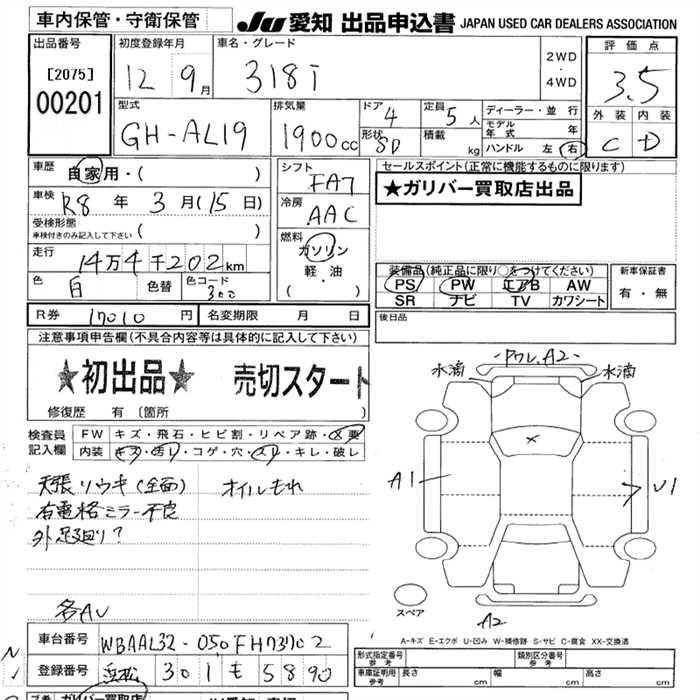 車内保管・守衛保管
JU 愛知 出品申込書 JAPAN USED CAR DEALERS ASSOCIATION
出品番号
[2075]
00201
初度登録年月
12 9月
車名・グレード
318i
2WD
・
4WD
評価点
3.5
外装 内装
C D
型式
GH-AL19
排気量
1900cc
ドア 4
形状 SD
定員 5人
積載 kg
ディーラー・並行
モデル年式 年
ハンドル 左 右
車歴
自家用・( )
車検
R8年 3月(15日)
受検形態
車検付きのみ記入して下さい ( )
走行
14万4千202km
色
白
色替
色コード
300
シフト
FA7
冷房
AAC
燃料
ガソリン
軽・油
( ・ )
セールスポイント(正常に機能するものに限ります)
★ガリバー買取店出品
装備品(純正品に限り○をつけてください)
PS PW エアB AW
SR ナビ TV カワシート
新車保証書
有・無
後日品
R券 17010円
名変期限 月 日
注意事項申告欄(不具合内容等は具体的に記入して下さい)
★初出品★ 売切スタート
修復歴 有 〔箇所 〕
検査員
記入欄
FW キズ・飛石・ヒビ割・リペア跡・X要
内装 キズ・汚レ・コゲ・穴・スレ・キレ・破レ
天張リウキ(全面) オイルもれ
右電格ミラー不良
外足廻り?
名AU
水滴 水滴
A2
A1
U1
スペア
A2
A-キズ E-エクボ U-凹み W-補修跡 S-サビ C-腐食 XX-交換済
車台番号 WBAAL32-050FH73702
登録番号 浜松 301 も 5890
形式指定番号
参考
類別区分番号
参考
車庫証明用
参考
長さ cm 幅 cm 高さ cm
ガリバー買取店